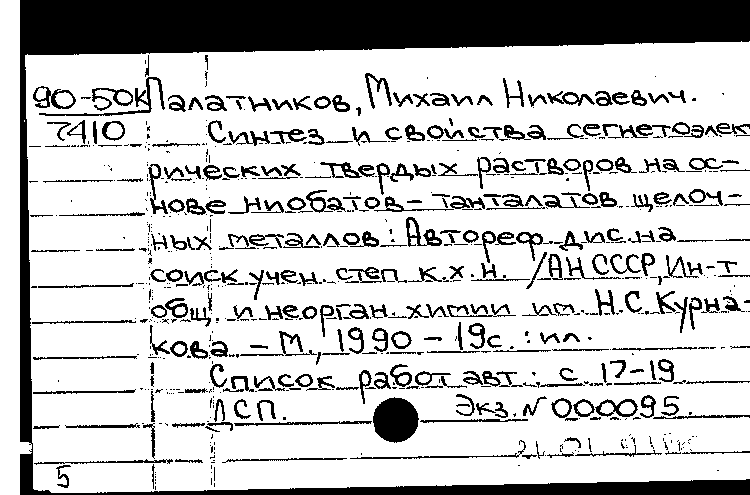 90-50К Палатников, Михаил Николаевич.
7410 Синтез и свойства сегнетоэлект
рических твердых растворов на ос-
нове ниобатов-танталатов щелоч-
ных металлов: Автореф. дис. на
соиск. учен. степ. к.х.н. / АН СССР, Ин-т
общ. и неорган. химии им. Н.С. Курна-
кова. - М., 1990 - 19с. : ил.
Список работ авт.: с. 17-19
ДСП. Экз. N 000095.
21.01.91
5